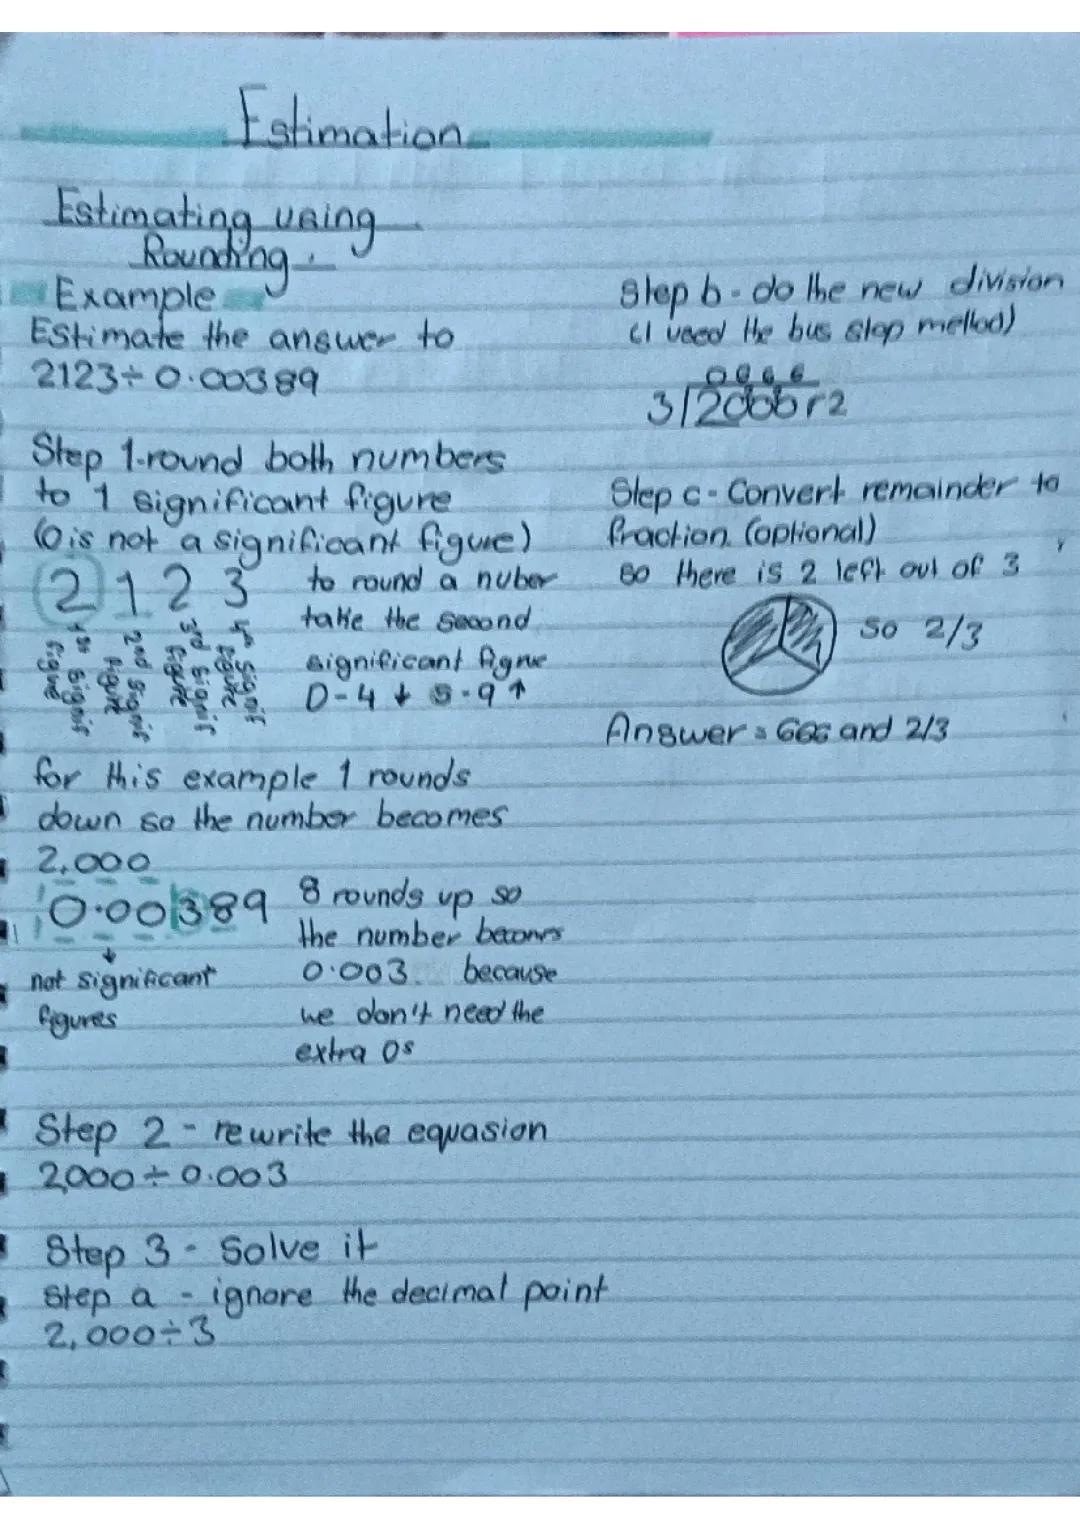 Estimation
Estimating using
Rounding.
Example
Estimate the answer to
2123÷0.00389
Step 1-round both numbers
to 1 significant figure
(0 is not a significant figure)
2 1 2 3
1st signif figure
2nd signif figure
3rd signif figure
4th signif figure
to round a nuber
take the second
significant figure
0-4 ↓ 5-9 ↑
for this example 1 rounds
down so the number becomes
2,000
0.00389
not significant
figures
8 rounds up so
the number becomes
0.003. because
we don't need the
extra 0s
Step 2 - rewrite the equasion
2,000÷0.003
Step 3 - Solve it
Step a - ignore the decimal point
2,000÷3
Step b - do the new division
(I used the bus stop method)
0666
3/2000 r2
Step c - Convert remainder to
fraction (optional)
so there is 2 left out of 3
so 2/3
Answer = 666 and 2/3